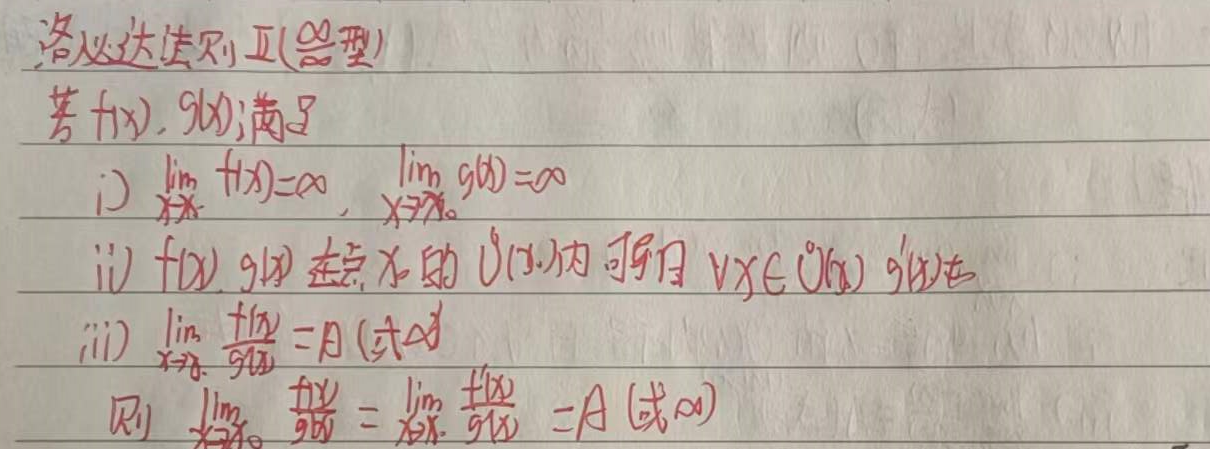 洛必达法则 II (∞/∞型)
若 f(x), g(x) 满足
i) lim x→x₀ f(x)=∞, lim x→x₀ g(x)=∞
ii) f(x), g(x) 在点 x₀ 的 Ů(x₀)内 可导且 ∀x∈Ů(x₀) g'(x)≠0
iii) lim x→x₀ f'(x)/g'(x) = A (或∞)
则 lim x→x₀ f(x)/g(x) = lim x→x₀ f'(x)/g'(x) = A (或∞)